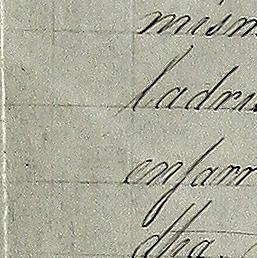 mism
ladri
enfarr
dha.